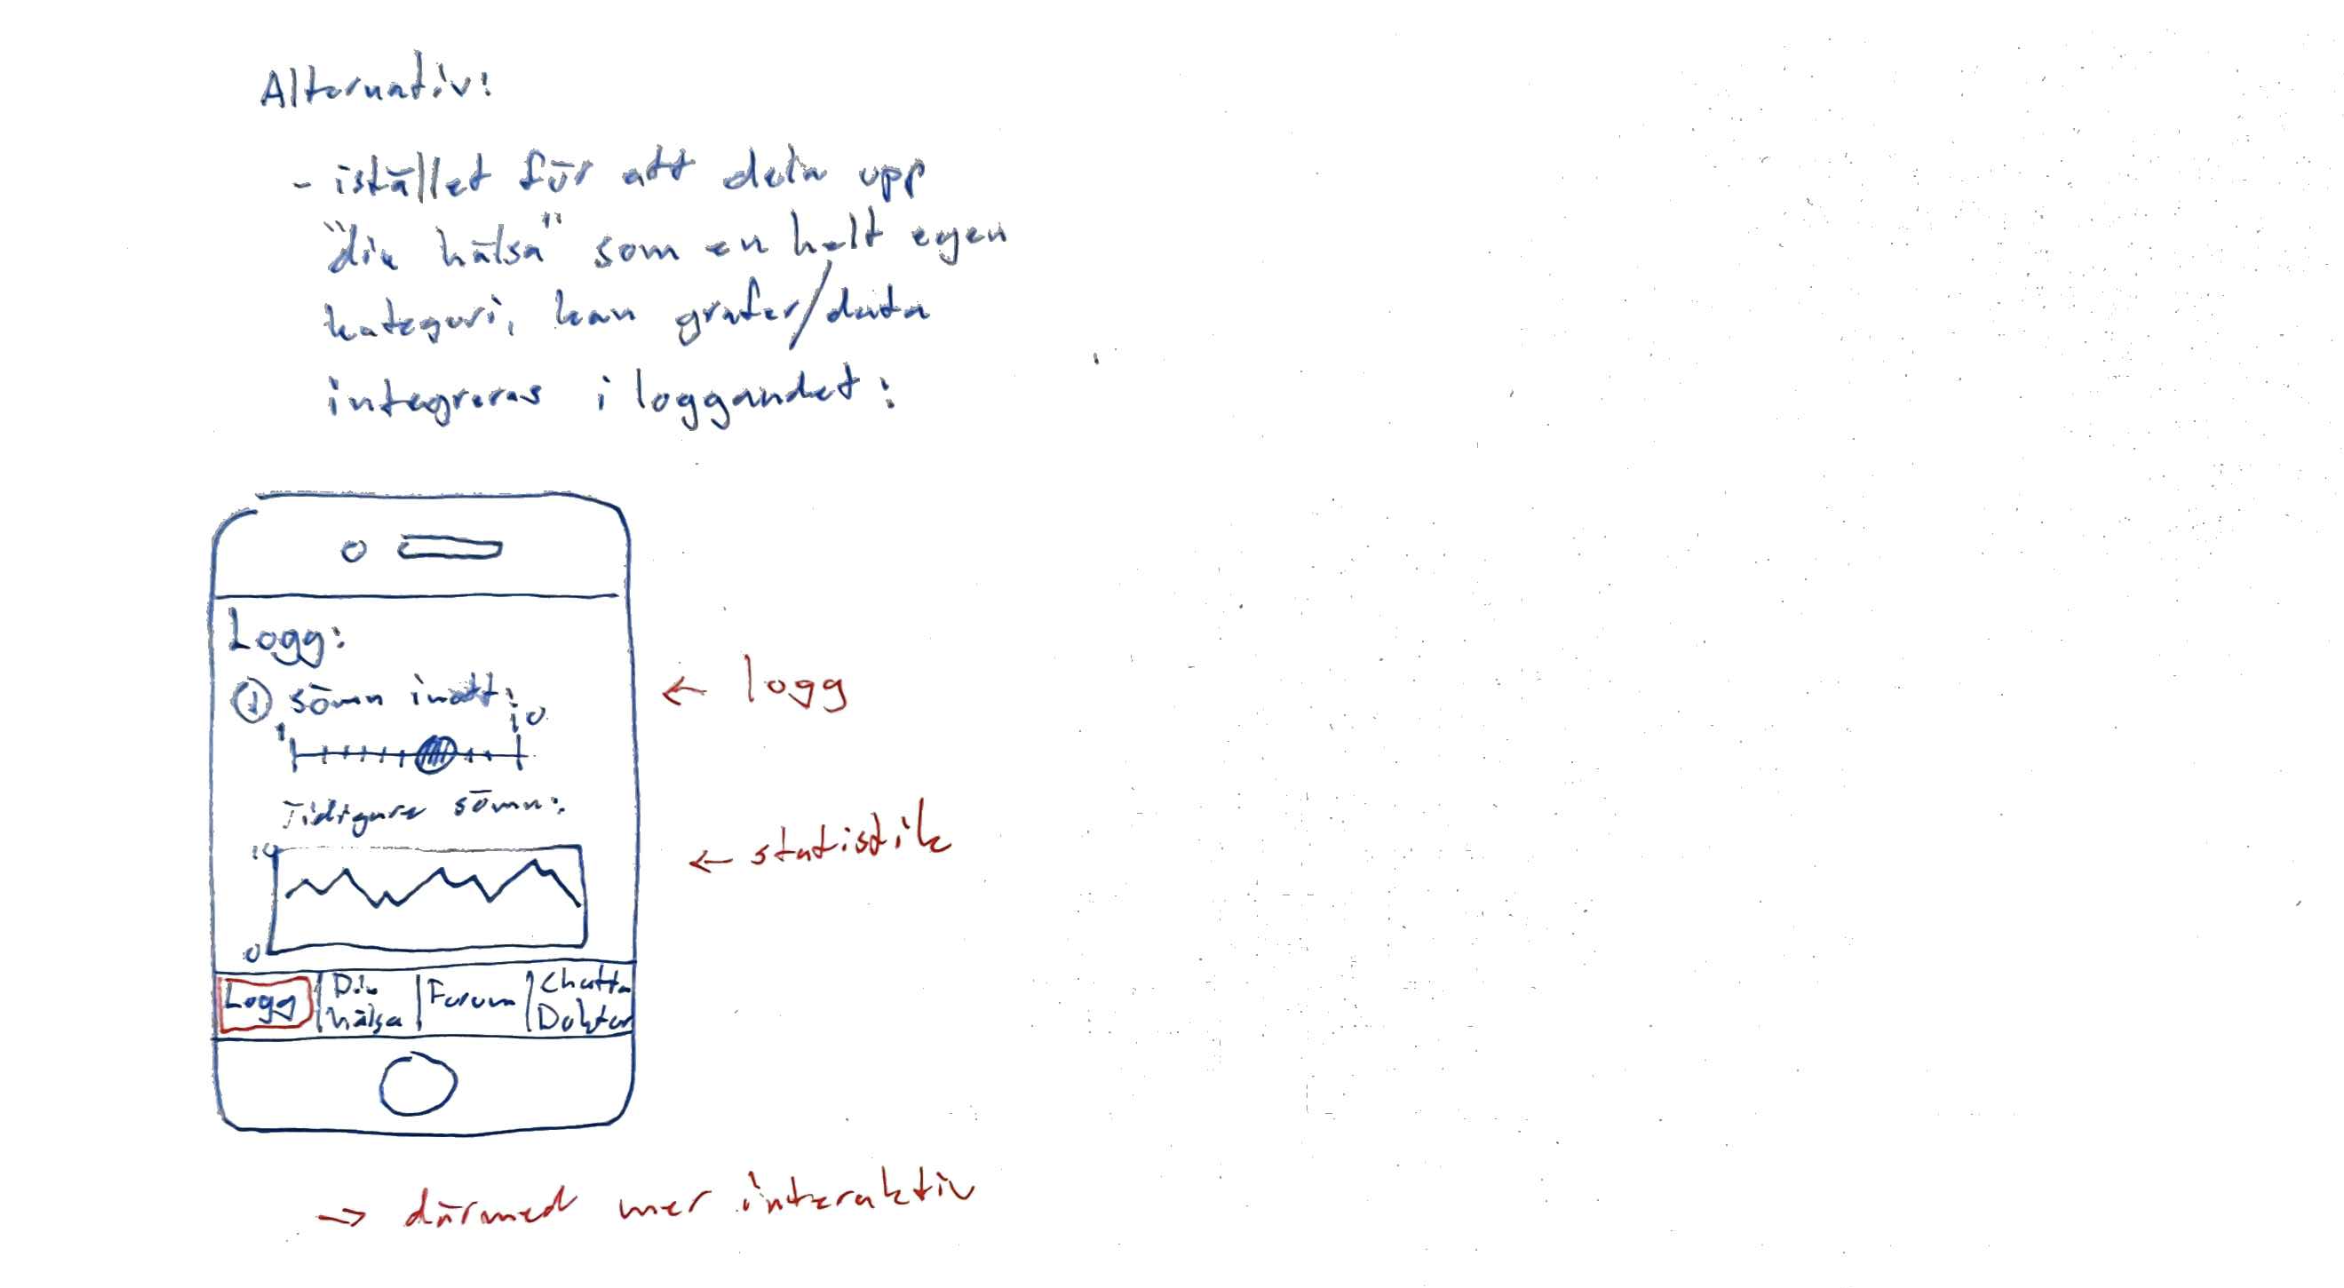 Alternativ:
- istället för att dela upp
"din hälsa" som en helt egen
kategori, kan grafer/data
integreras i loggandet:
Logg:
① sömn inatt:
1 10
← logg
Tidigare sömn:
10
← statistik
0
Logg | Din hälsa | Forum | Chatta Doktor
→ därmed mer interaktiv